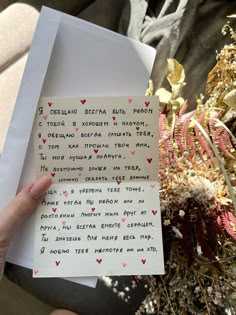 Я обещаю всегда быть рядом
с тобой в хорошем и плохом,
я обещаю всегда слушать тебя,
о том как прошли твои дни,
Ты моя лучшая подруга,
можно сказать родная
я уверена тебе тоже.
Даже когда мы не рядом или на
расстоянии многих миль друг от
друга, мы всегда вместе сердцем.
Ты значишь для меня весь мир.
Я люблю тебя несмотря ни на что.